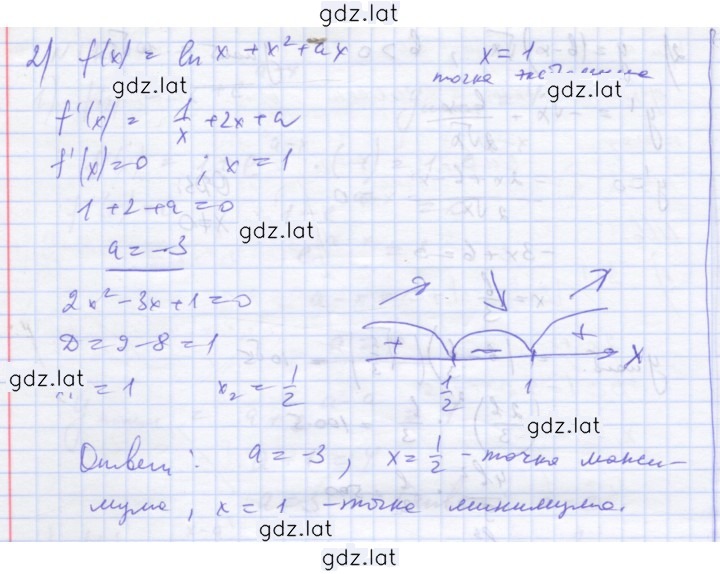 gdz.lat
2) f(x) = ln x + x² + ax x = 1
gdz.lat точка экстремума
gdz.lat
f'(x) = 1/x + 2x + a
f'(x) = 0 ; x = 1
1 + 2 + a = 0
gdz.lat
a = -3
2x² - 3x + 1 = 0
D = 9 - 8 = 1
+ - + x
gdz.lat
= 1 x₂ = 1/2 1/2 1
gdz.lat
Ответ: a = -3, x = 1/2 - точка макси-
мума, x = 1 - точка минимума.
gdz.lat
gdz.lat